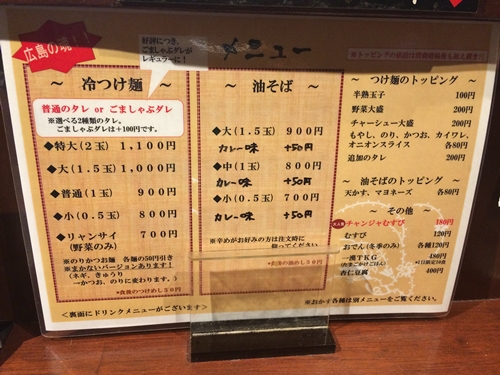 広島の魂!
好評につき、
ごましゃぶダレが
レギュラーに!
メニュー
~ 冷つけ麺 ~
普通のタレ or ごましゃぶダレ
※選べる2種類のタレ。
ごましゃぶダレは+100円です。
◆特大(2玉) 1,100円
◆大(1.5玉) 1,000円
◆普通(1玉) 900円
◆小(0.5玉) 800円
◆リャンサイ 700円
(野菜のみ)
※のりかつお麺 各麺の50円引き
※まかないバージョンあります!
(ネギ、きゅうり
→かつお、のりに変わります。)
*食後のつけめし50円
~ 油そば ~
◆大(1.5玉) 900円
カレー味 +50円
◆中(1玉) 800円
カレー味 +50円
◆小(0.5玉) 700円
カレー味 +50円
※辛めがお好みの方は注文時に
仰ってください。
*食後の油めし50円
~ つけ麺のトッピング ~
半熟玉子 100円
野菜大盛 200円
チャーシュー大盛 200円
もやし、のり、かつお、カイワレ、
オニオンスライス 各80円
追加のタレ 200円
~ 油そばのトッピング ~
天かす、マヨネーズ 各80円
~ その他 ~
チャンジャむすび 180円
むすび 120円
おでん(冬季のみ) 各種120円
一漢TKG 480円
(たまごかけごはん) *1日限定10食
杏仁豆腐 400円
※おかず各種は別メニューをご覧ください。
<裏面にドリンクメニューがございます>